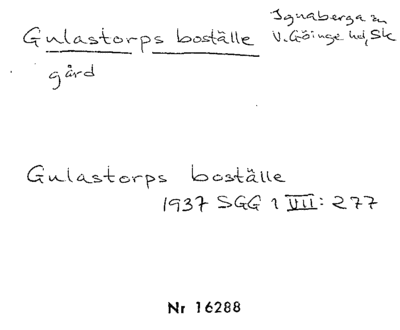 Gulastorps boställe
Ignaberga sn
V. Göinge hd, Sk
gård
Gulastorps boställe
1937 SGG 1 VII: 277
Nr 16288